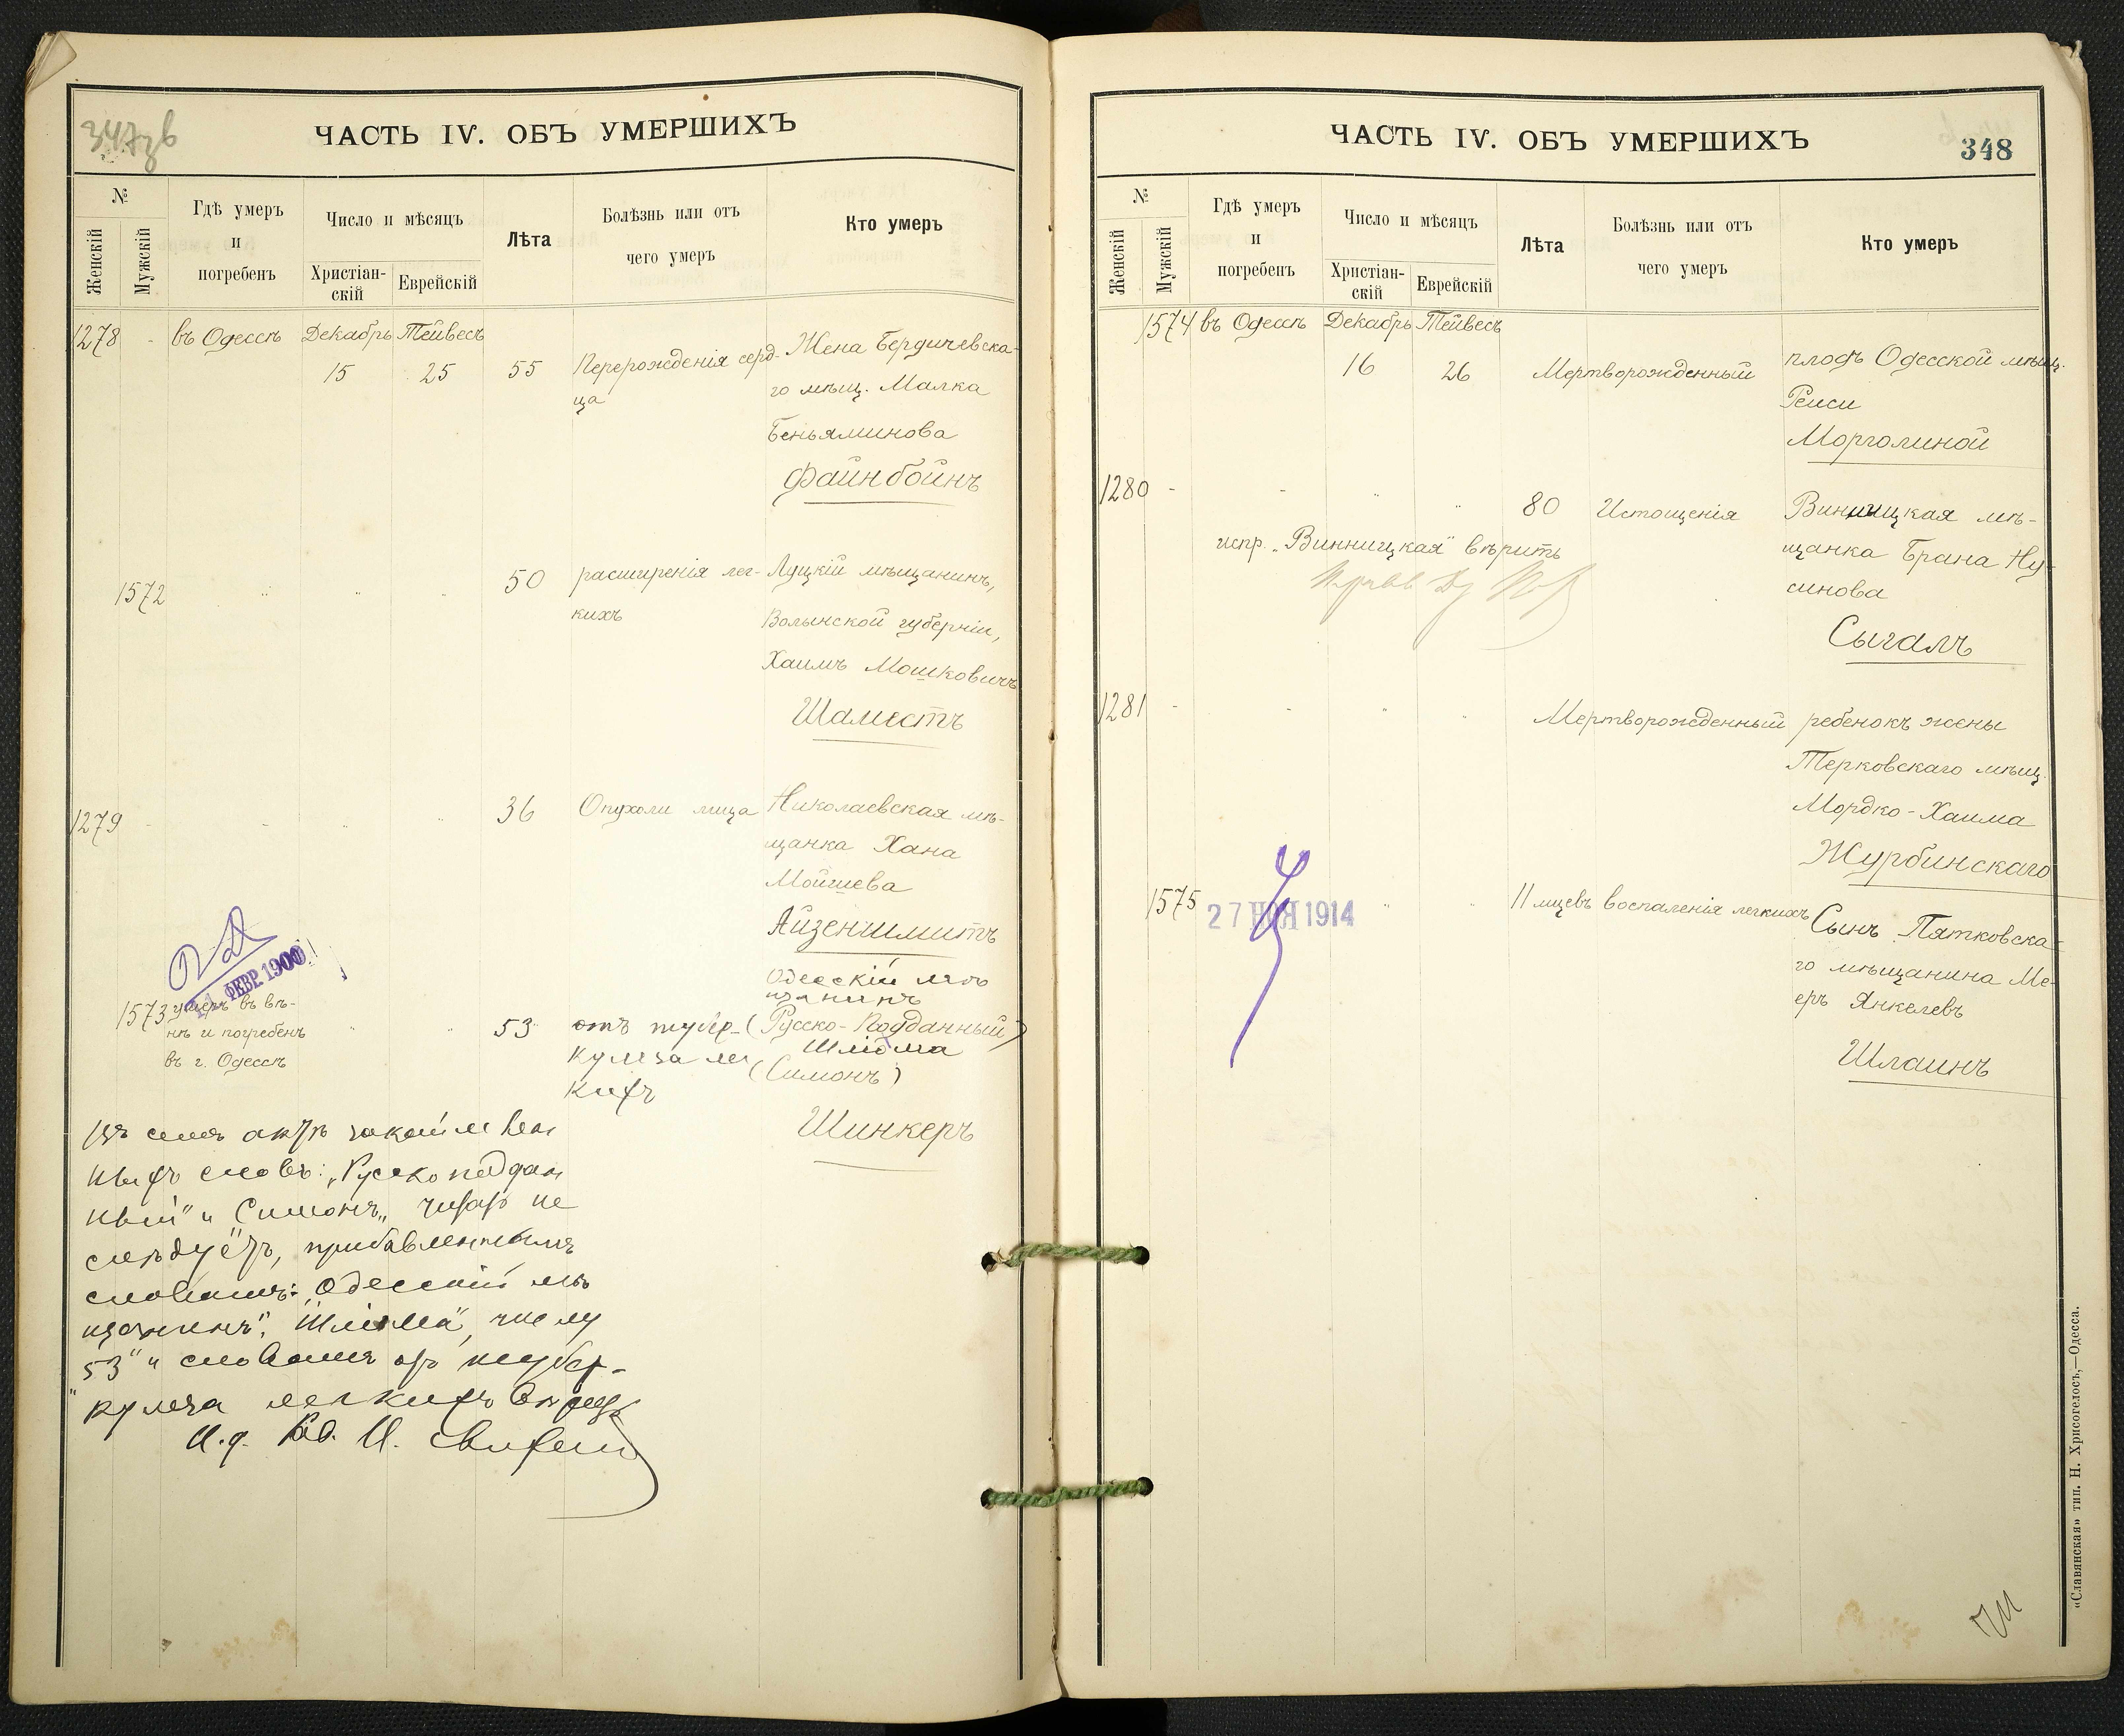 347об
ЧАСТЬ IV. ОБЪ УМЕРШИХЪ
№
Женскій
Мужскій
Гдѣ умеръ
и
погребенъ
Число и мѣсяцъ
Христіан-
скій
Еврейскій
Лѣта
Болѣзнь или отъ
чего умеръ
Кто умеръ
1278 - въ Одессѣ Декабрь Тейвесъ
15 25 55 Перерожденія серд-
ца
Жена Бердичевска-
го мѣщ. Малка
Беньяминова
Файнбойнъ
1572 " " " 50 расширенія лег-
кихъ
Луцкій мѣщанинъ,
Волынской губерніи,
Хаимъ Мошковичъ
Шаместь
1279 - - " " 36 Опухоли лица
Николаевская мѣ-
щанка Хана
Мойшева
Айзеншмитъ
ФЕВР. 1900
1573 умеръ въ вѣ-
нѣ и погребенъ
въ г. Одессѣ
" " 53 отъ тубер-
кулеза лег
кихъ
Одесскій мѣ
щанинъ
(Русско-Подданный)
Шліома
(Симонъ)
Шинкеръ
Въ семъ актѣ закаймлен
ныхъ словъ: „Русско поддан
ный" и Симонъ„ читать не
слѣдуетъ, прибавленнымъ
словамъ: „Одесскій мѣ
щанинъ", "Шліома", числу
53" и словамъ отъ тубер-
"кулеза легкихъ вѣрить
И. д.
ЧАСТЬ IV. ОБЪ УМЕРШИХЪ
348
№
Женскій
Мужскій
Гдѣ умеръ
и
погребенъ
Число и мѣсяцъ
Христіан-
скій
Еврейскій
Лѣта
Болѣзнь или отъ
чего умеръ
Кто умеръ
1574 въ Одессѣ Декабрь Тейвесъ
16 26 Мертворожденный
плодъ Одесской мѣщ.
Рейси
Морголиной
1280 - - " " 80 Истощенія
Винницкая мѣ-
щанка Брана Ну-
синова
Сыгалъ
испр. „Винницкая" вѣрить
1281 - - " " Мертворожденный ребенокъ жены
Терковскаго мѣщ.
Мордко-Хаима
Журбинскаго
1575 " " 11 мцевъ воспаленія легкихъ
27 НОЯ 1914
Сынъ Пятковска-
го мѣщанина Ме-
еръ Янкелевъ
Шлаинъ
«Славянская» тип. Н. Хрисогелосъ,—Одесса.